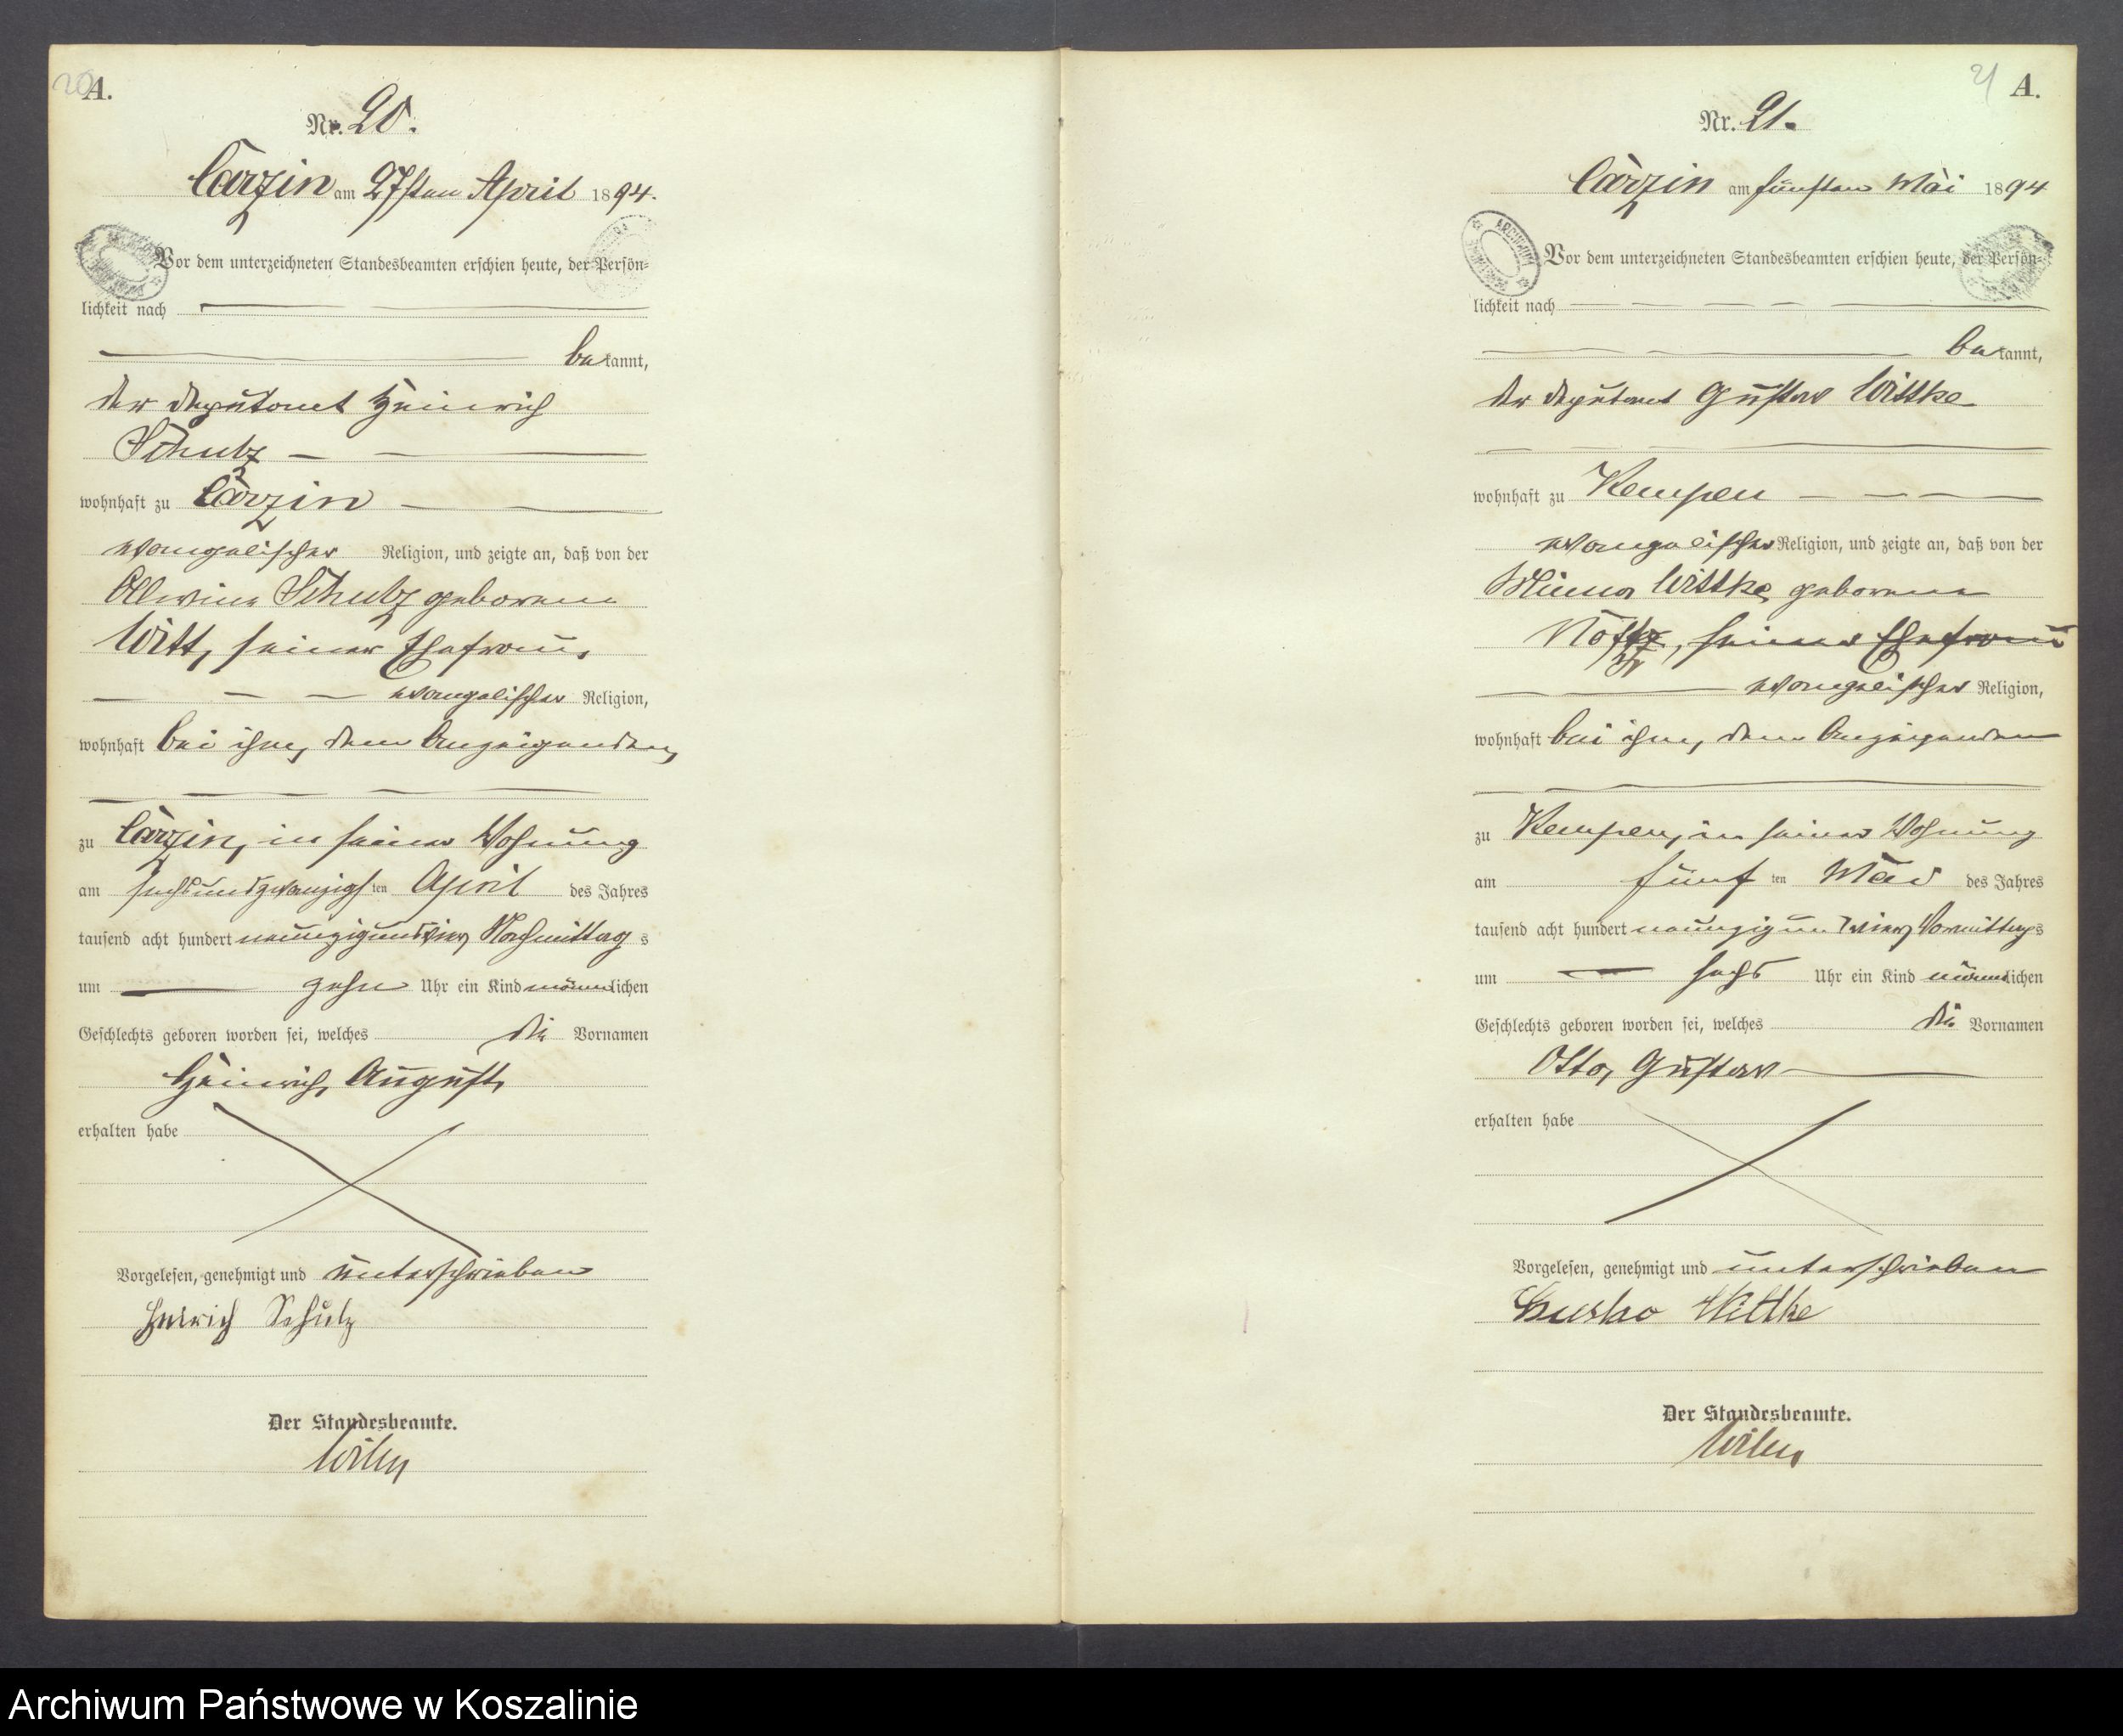 20 A.
Nr. 20.
Carzin am 27sten April 1894.
Vor dem unterzeichneten Standesbeamten erschien heute, der Persön-
lichkeit nach
bekannt,
der Deputant Heinrich
Schulz
wohnhaft zu Carzin
evangelischer Religion, und zeigte an, daß von der
Alwine Schulz geborene
Witt, seiner Ehefrau,
evangelischer Religion,
wohnhaft bei ihm, dem Anzeigenden,
zu Carzin, in seiner Wohnung
am sechsundzwanzigsten April des Jahres
tausend acht hundert neunzigundvier Nachmittags
um zehn Uhr ein Kind männlichen
Geschlechts geboren worden sei, welches die Vornamen
Heinrich, August,
erhalten habe
Vorgelesen, genehmigt und unterschrieben
Heinrich Schulz
Der Standesbeamte.
21 A.
Nr. 21.
Carzin am fünften Mai 1894
ARCHIWUM
Vor dem unterzeichneten Standesbeamten erschien heute, der Persön-
lichkeit nach
bekannt,
der Deputant Gustav Wittke
wohnhaft zu Kempen
evangelischer Religion, und zeigte an, daß von der
Minna Wittke, geborene
seiner Ehefrau
evangelischer Religion,
wohnhaft bei ihm, dem Anzeigenden
zu Kempen, in seiner Wohnung
am fünften Mai des Jahres
tausend acht hundert neunzig und vier Vormittags
um sechs Uhr ein Kind männlichen
Geschlechts geboren worden sei, welches die Vornamen
Otto, Gustav
erhalten habe
Vorgelesen, genehmigt und unterschrieben
Gustav Wittke
Der Standesbeamte.
Archiwum Państwowe w Koszalinie